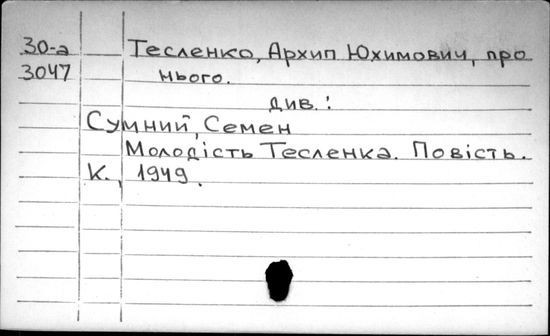 30-а Тесленко, Архип Юхимович, про
3047 нього.
див.:
Сумний, Семен
Молодість Тесленка. Повість.
К., 1949.